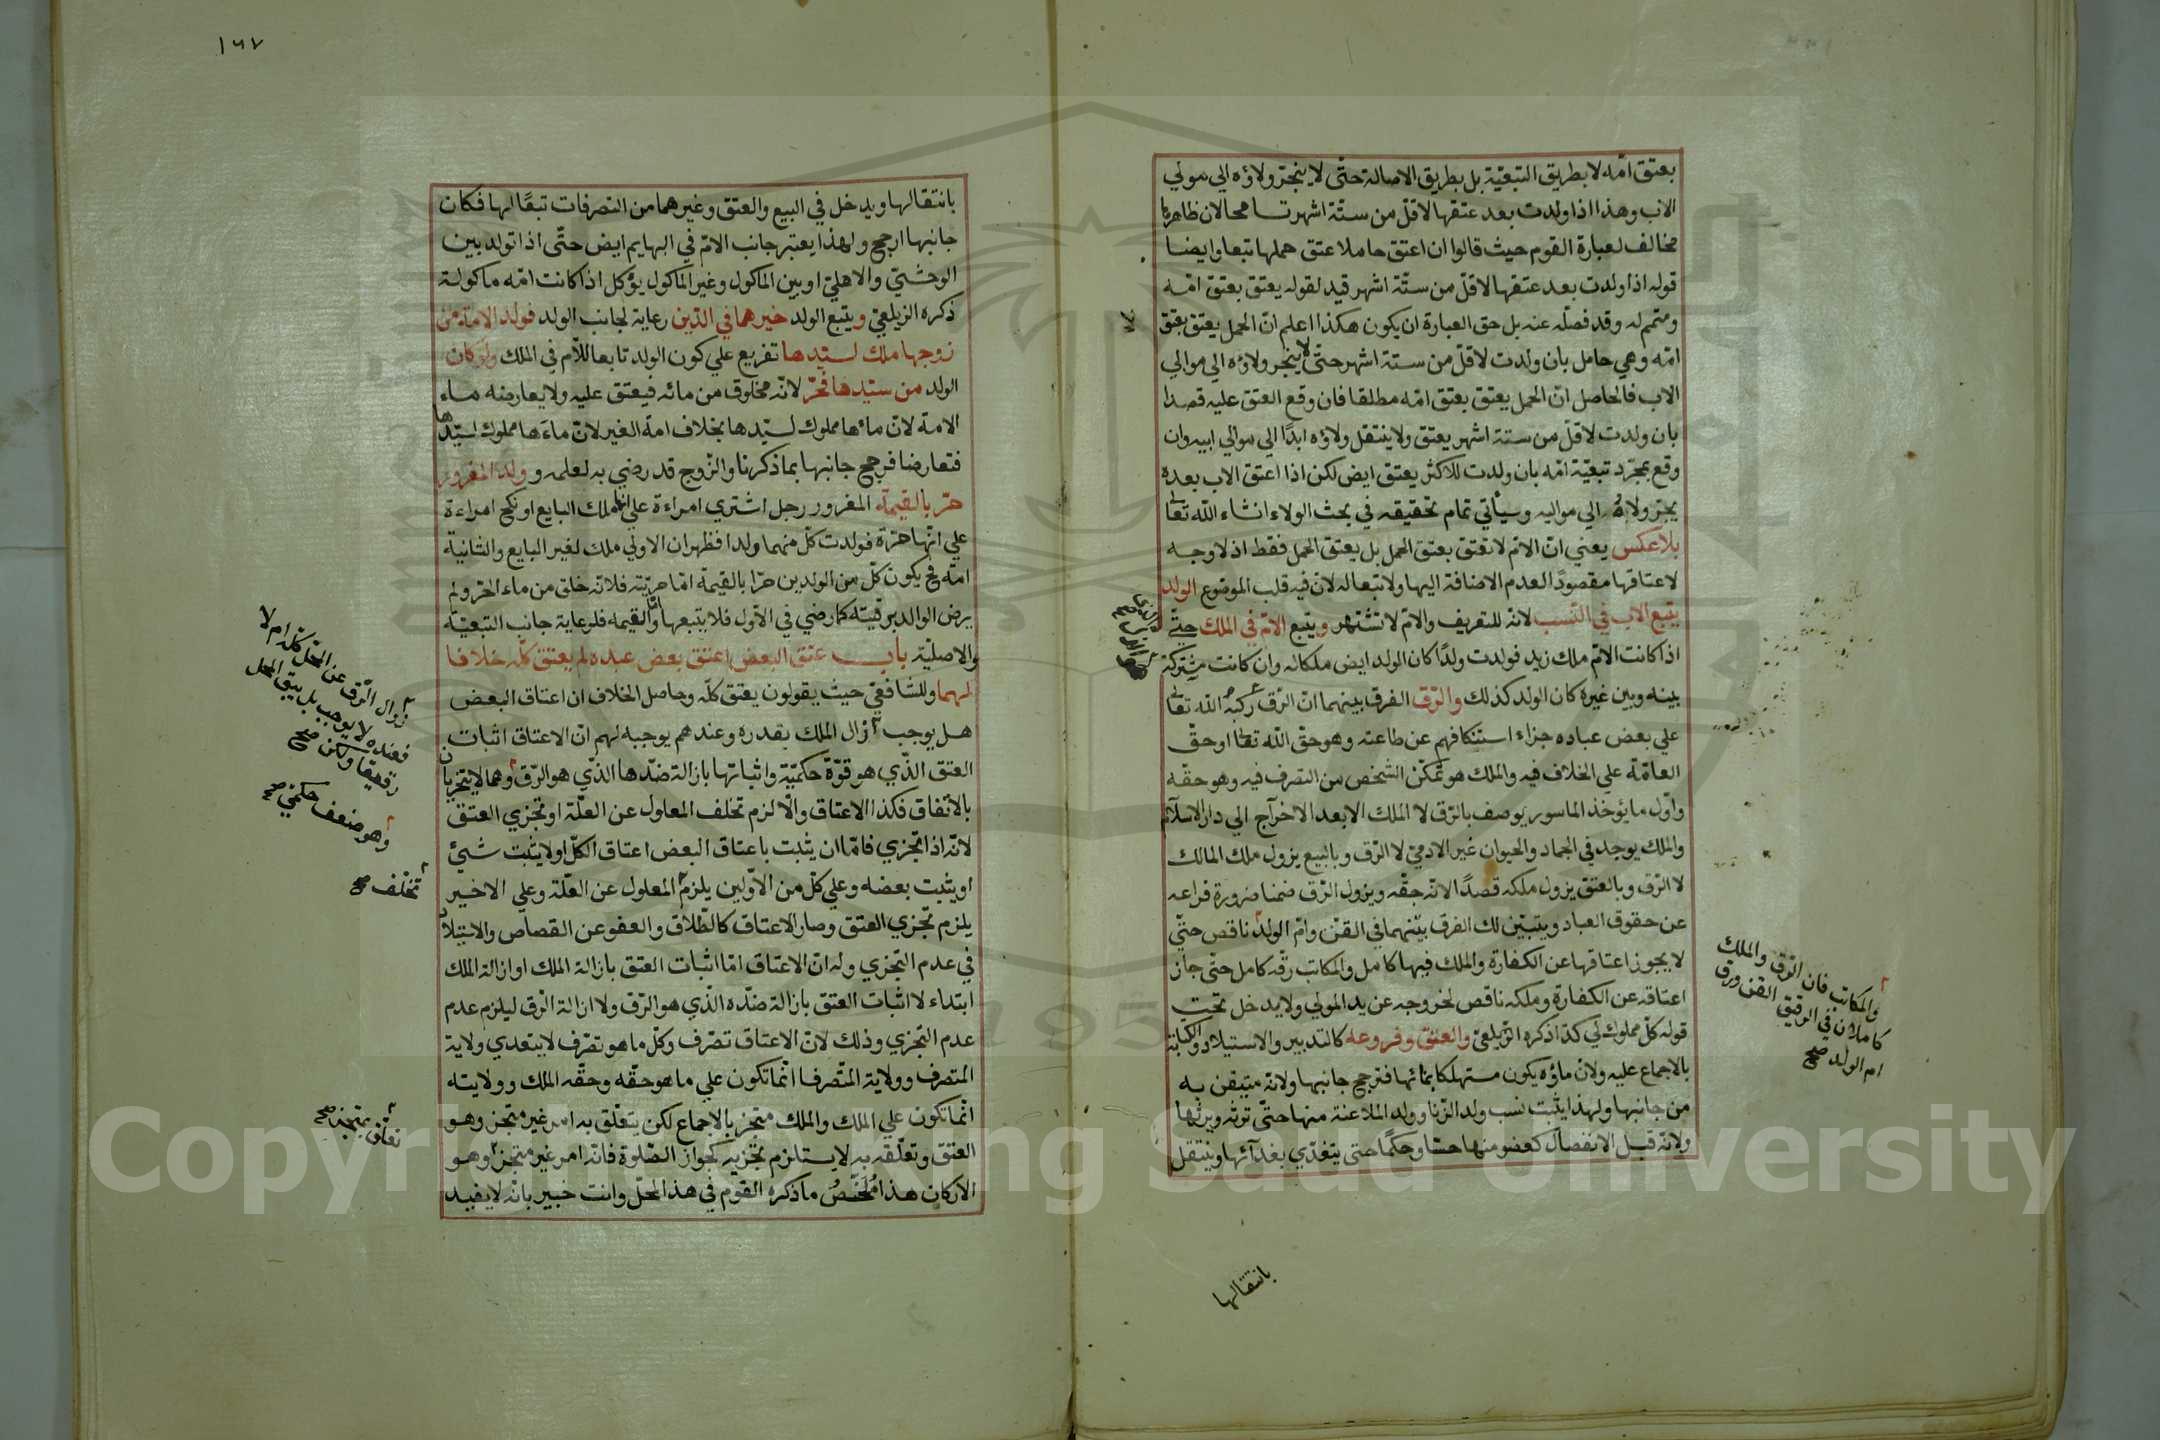 بعتق امّه لا بطريق التبعيّة بل بطريق الاصالة حتّى لا ينجرّ ولاؤه الي مولي
الاب وهذا اذا ولدت بعد عتقها لاقلّ من ستّة اشهر
مخالف لعبارة القوم حيث قالوا ان اعتق حاملا عتق حملها تبعا وايضا
قوله اذا ولدت بعد عتقها لاقلّ من ستّة اشهر قيد لقوله يعتق بعتق امّه
ومتمم له وقد فصلّه عنه بل حق العبارة ان يكون هكذا اعلم انّ الحمل يعتق بعتق
امّه وهي حامل بان ولدت لاقلّ من ستة اشهر حتّى لا ينجر ولاؤه الي موالي
الاب فالحاصل انّ الحمل يعتق بعتق امّه مطلقا فان وقع العتق عليه قصدا
بان ولدت لاقلّ من ستة اشهر يعتق ولا ينتقل ولاؤه ابدًا الي موالي ابيه وان
وقع بمجرّد تبعيّة امّه بان ولدت للاكثر يعتق ايض لكن اذا اعتق الاب بعده
يجرّ ولاؤه الي مواليه وسيأتي تمام تحقيقه في بحث الولاء انشاء اللّه تعالى
بلا عكس يعني انّ الامّ لا تعتق بعتق الحمل بل يعتق الحمل فقط اذ لا وجه
لاعتاقها مقصودًا لعدم الاضافة اليها ولا تبعا له لانّ فيه قلب الموضوع الولد
يتبع الاب في النّسب لانّه للتعريف والامّ لا تشتهر ويتبع الامّ في الملك حتّي
اذا كانت الامّ ملك زيد فولدت ولدًا كان الولد ايض ملكا له وان كانت مشتركة
بينه وبين غيره كان الولد كذلك والرّق الفرق بينهما انّ الرّق ركبه اللّه تعالى
علي بعض عباده جزاء استنكافهم عن طاعته وهو حقّ اللّه تعالى او حقّ
العامّة علي الخلاف فيه والملك هو تمكّن الشخص من التصرف فيه وهو حقّه
واوّل ما يؤخذ الماسور يوصف بالرّق لا الملك الا بعد الاخراج الي دار الاسلام
والملك يوجد في الجماد والحيوان غير الادميّ لا الرّق وبالبيع يزول ملك المالك
لا الرّق وبالعتق يزول ملكه قصدًا لانّه حقّه ويزول الرّق ضمنا ضرورة فراغه
عن حقوق العباد ويتبيّن لك الفرق بينهما في القنّ وامّ الولد ناقص حتّي
لا يجوز اعتاقها عن الكفارة والملك فيها كامل والمكاتب رقّه كامل حتّى جاز
اعتاقه عن الكفارة وملكه ناقص لخروجه عن يد المولي ولا يدخل تحت
قوله كلّ مملوك لي كذا ذكره الزّيلعيّ والعتق وفروعه كالتدبير والاستيلاد والكتابة
بالاجماع عليه ولانّ ماؤه يكون مستهلكا بمائها فترجح جانبها ولانّه متيقن به
من جانبها ولهذا يثبت نسب ولد الزّنا وولد الملاعنة منها حتّي ترثه ويرثها
ولانّه قبل الانفصال كعضو منها حسّا وحكمًا حتى يتغذّي بغذآئها وينتقل
والمكاتب فان الرّق والملك
كاملان في الرقيق القن ورق
ام الولد صح
بانتقالها
١٦٧
بانتقالها ويدخل في البيع والعتق وغيرهما من التصرفات تبعًا لها فكان
جانبها ارجح ولهذا يعتبر جانب الامّ في البهايم ايض حتّي اذا تولد بين
الوحشيّ والاهليّ او بين الماكول وغير الماكول يؤكل اذا كانت امّه ماكولة
ذكره الزيلعيّ ويتبع الولد خيرهما في الدّين رعاية لجانب الولد فولد الامة من
زوجها ملك لسيّدها تفريع علي كون الولد تابعا للامّ في الملك ولو كان
الولد من سيّدها فحرّ لانّه مخلوق من مائه فيعتق عليه ولا يعارضه ماء
الامة لانّ ماءها مملوك لسيّدها بخلاف امة الغير لانّ ماءها مملوك لسيّدها
فتعارضا فرجح جانبها بما ذكرنا والزّوج قد رضي به لعلمه وولد المغرور
حرّ بالقيمة المغرور رجل اشتري امراءة علي انها ملك البايع او نكح امراءة
علي انّها حرّة فولدت كلّ منهما ولدا فظهر ان الاولي ملك لغير البايع والثّانية
امة فح يكون كلّ من الولدين حرّا بالقيمة امّا حريّته فلانّه خلق من ماء الحرّ ولم
يرض الوالد برقيّته كما رضي في الاوّل فلا يتبعها وامّا القيمة فلرعاية جانب التبعيّة
والاصليّة باب عتق البعض اعتق بعض عبده لم يعتق كلّه خلافا
لهما وللشّافعيّ حيث يقولون يعتق كلّه وحاصل الخلاف ان اعتاق البعض
هل يوجب ازال الملك بقدره وعندهم يوجبه لهم انّ الاعتاق اثبات
العتق الّذي هو قوّة حكميّة واثباتها بازالة ضدّها الّذي هو الرّق وهما لا يتجزيان
بالاتّفاق فكذا الاعتاق والّا لزم تخلف المعلول عن العلّة او تجزي العتق
لانّه اذا تجزي فامّا ان يثبت باعتاق البعض اعتاق الكلّ او لا يثبت شيئ
او يثبت بعضه وعلي كلّ من الاوّلين يلزم المعلول عن العلّة وعلي الاخير
يلزم تجزي العتق وصار الاعتاق كالطّلاق والعفو عن القصاص والاستيلاد
في عدم التجزي وله انّ الاعتاق امّا اثبات العتق بازالة الملك او ازالة الملك
ابتداء لا اثبات العتق بازالة ضدّه الّذي هو الرّق ولا ازالة الرق ليلزم عدم
عدم التّجزي وذلك لانّ الاعتاق تصّرف وكلّ ما هو تصّرف لا يتعدي ولاية
المتصرف وولاية المتّصرف انّما تكون علي ما هو حقّه وحقّه الملك وولايته
انّما تكون علي الملك والملك متجز بالاجماع لكن يتعلّق به امر غير متجز وهو
العتق وتعلّقه به لا يستلزم تجزيه كجواز الصّلوة فانّه امر غير متجز وهو
الاركان هذا مُلخّصُ ما ذكره القوم في هذا المحلّ وانت خبير بانّه لا يفيد
زوال الرّق عن المحلّ كلّه ام لا
فعنده لا يوجب بل يبقى المحل
رقيقا ولكن صح
وهو ضعف حكميّ صح
تخلّف صح
تعلّق بمتجز صح
Copyright © King Saud University
1957